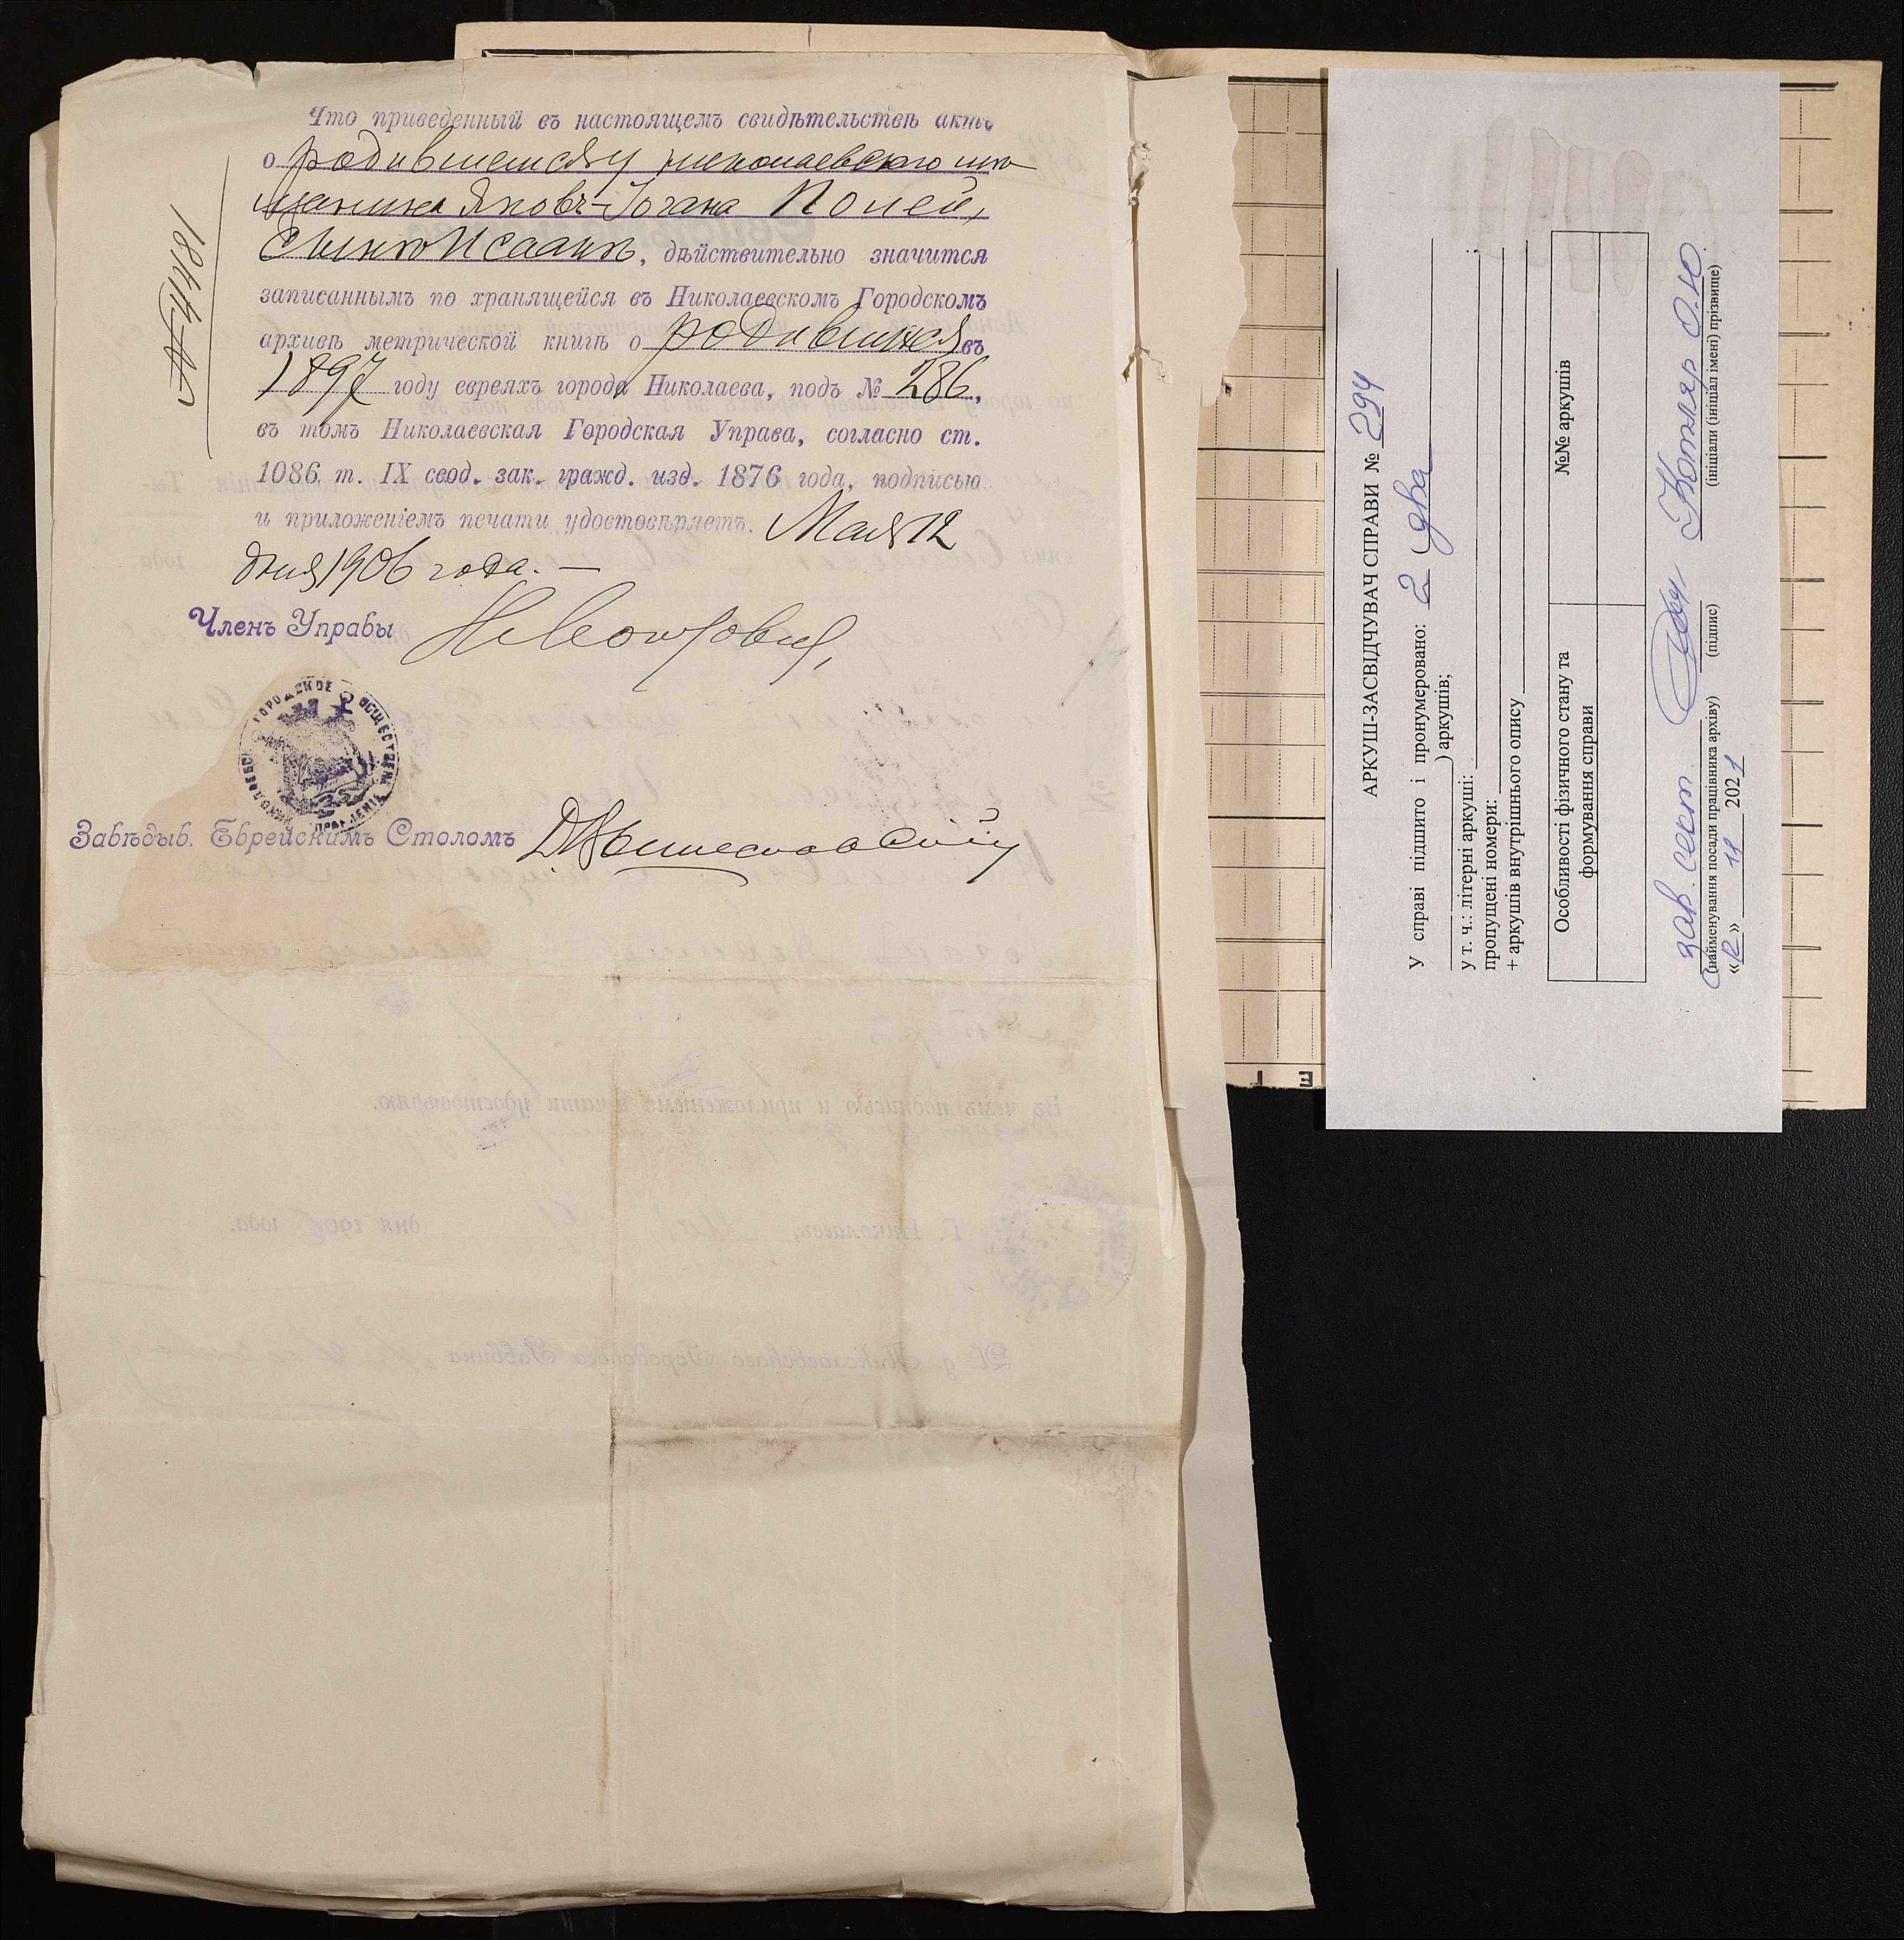 Что приведенный въ настоящемъ свидѣтельствѣ актъ
о родившемся у николаевскаго мѣ-
щанина Яковъ-Іогана Полей,
сынѣ Исаакѣ, дѣйствительно значится
записаннымъ по хранящейся въ Николаевскомъ Городскомъ
архивѣ метрической книгѣ о родившихся въ
1897 году евреяхъ города Николаева, подъ № 286,
въ томъ Николаевская Городская Управа, согласно ст.
1086, т. IX свод. зак. гражд. изд. 1876 года, подписью
и приложеніемъ печати удостовѣряетъ. Мая 12
дня 1906 года. —
Членъ Управы
НИКОЛАЕВСК. ГОРОДСКОЕ ОБЩЕСТВЕН. УПРАВЛЕНІЕ
Завѣдыв. Еврейскимъ Столомъ
АРКУШ-ЗАСВІДЧУВАЧ СПРАВИ № 294
У справі підшито і пронумеровано: 2 (два
) аркушів;
у т. ч.: літерні аркуші: ;
пропущені номери:
+ аркушів внутрішнього опису
Особливості фізичного стану та формування справи
№№ аркушів
зав. сект. Котляр О.Ю.
(найменування посади працівника архіву) (підпис) (ініціали (ініціал імені) прізвище)
«12» 11 2021